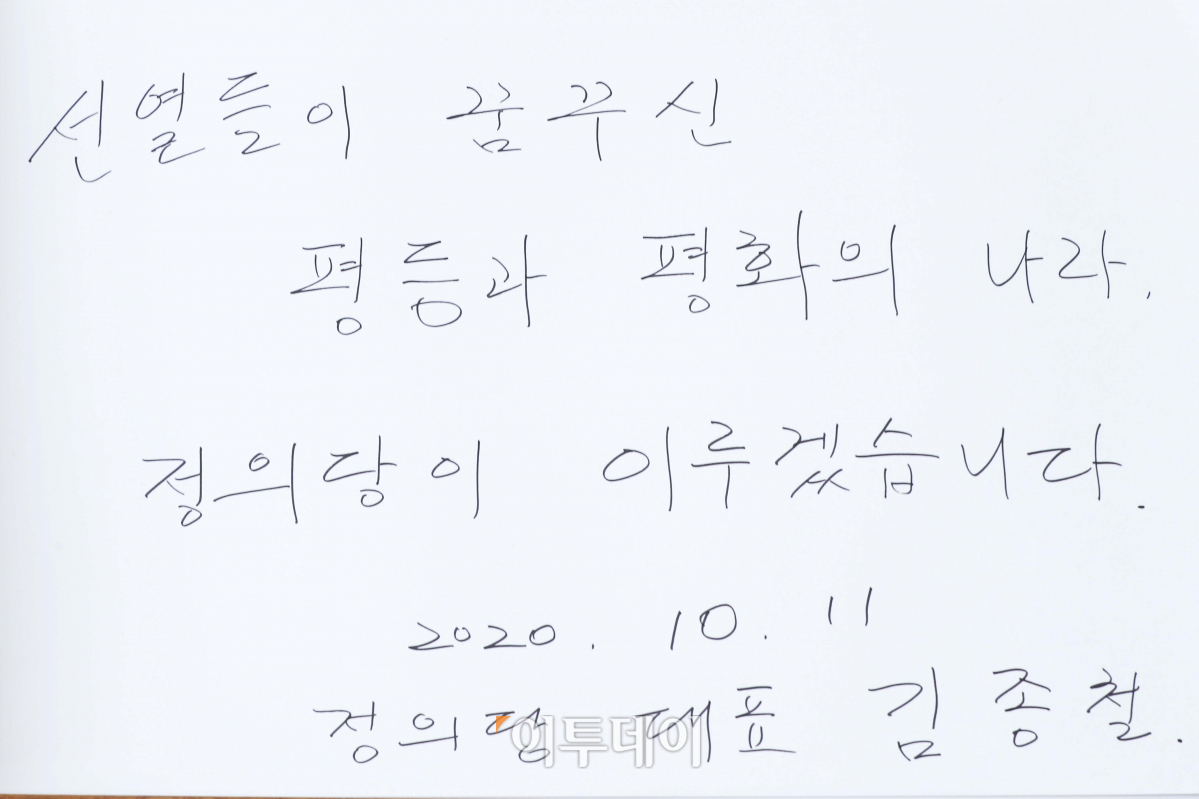 선열들이 꿈꾸신
평등과 평화의 나라.
정의당이 이루겠습니다.
2020. 10. 11
정의당 대표 김종철.
이투데이